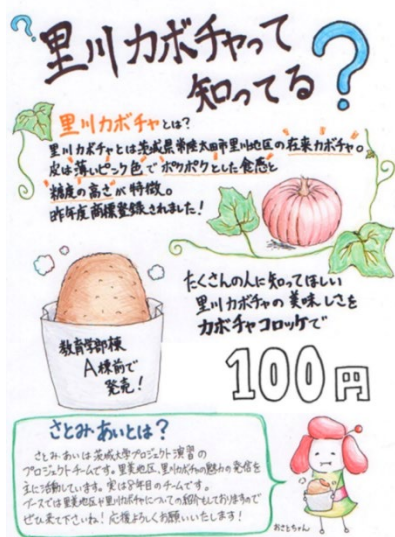 里川カボチャって
知ってる?
里川カボチャとは?
里川カボチャとは茨城県常陸太田市里川地区の在来カボチャ。
皮は薄いピンク色でホクホクとした食感と
糖度の高さが特徴。
昨年度商標登録されました!
たくさんの人に知ってほしい
里川カボチャの美味しさを
カボチャコロッケで
100円
教育学部棟
A棟前で
発売!
さとみ・あいとは?
さとみ・あいは茨城大学プロジェクト演習の
プロジェクトチームです。里美地区、里川カボチャの魅力の発信を
主に活動しています。実は8年目のチームです。
ブースでは里美地区や里川カボチャについての紹介もしておりますので
ぜひ来て下さいね!応援よろしくお願いいたします!
おさとちゃん